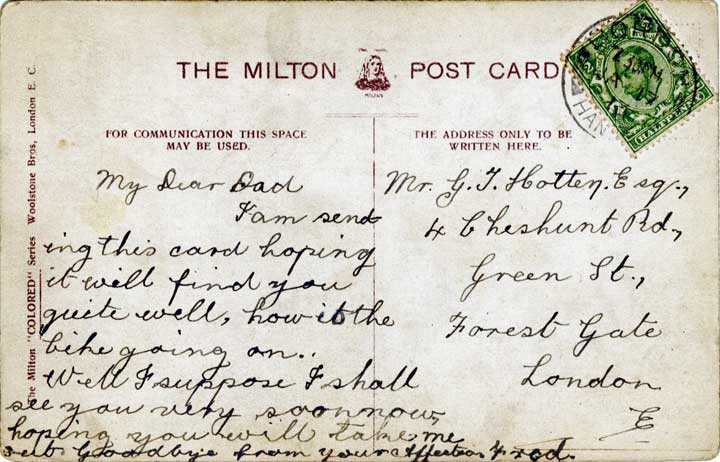 THE MILTON POST CARD
MILTON
FOR COMMUNICATION THIS SPACE
MAY BE USED.
THE ADDRESS ONLY TO BE
WRITTEN HERE.
The Milton "COLORED" Series Woolstone Bros, London E. C.
My Dear Dad
I am send
ing this card hoping
it will find you
quite well, how is the
bike going on..
Well I suppose I shall
see you very soon now,
hoping you will take me
out Goodbye from your Affection
Mr. G. T. Hotten. Esq.,
4 Cheshunt Rd.,
Green St.,
Forest Gate
London
E
HALFPENNY
HAN